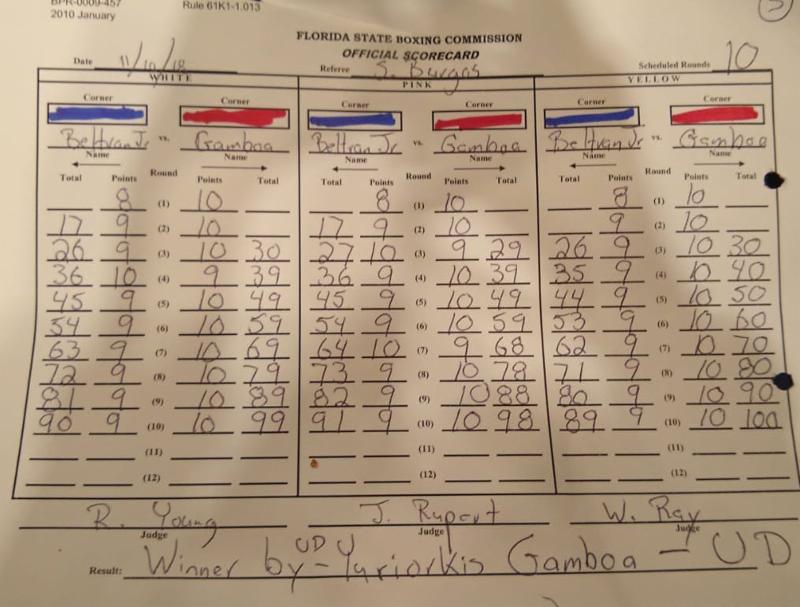 BPR-0009-457 Rule 61K1-1.013
2010 January
FLORIDA STATE BOXING COMMISSION
OFFICIAL SCORECARD
Date 11/10/18 Referee S. Burgos Scheduled Rounds 10
WHITE PINK YELLOW
Corner Corner Corner Corner Corner Corner
Beltran Jr vs. Gamboa Beltran Jr vs. Gamboa Beltran Jr vs. Gamboa
Name Name Name Name Name Name
Total Points Round Points Total Total Points Round Points Total Total Points Round Points Total
8 (1) 10 8 (1) 10 8 (1) 10
17 9 (2) 10 17 9 (2) 10 9 (2) 10
26 9 (3) 10 30 27 10 (3) 9 29 26 9 (3) 10 30
36 10 (4) 9 39 36 9 (4) 10 39 35 9 (4) 10 40
45 9 (5) 10 49 45 9 (5) 10 49 44 9 (5) 10 50
54 9 (6) 10 59 54 9 (6) 10 59 53 9 (6) 10 60
63 9 (7) 10 69 64 10 (7) 9 68 62 9 (7) 10 70
72 9 (8) 10 79 73 9 (8) 10 78 71 9 (8) 10 80
81 9 (9) 10 89 82 9 (9) 10 88 80 9 (9) 10 90
90 9 (10) 10 99 91 9 (10) 10 98 89 9 (10) 10 100
(11) (11) (11)
(12) (12) (12)
R. Young J. Rupert W. Ray
Judge Judge Judge
UD
Result: Winner by - Yuriorkis Gamboa - UD